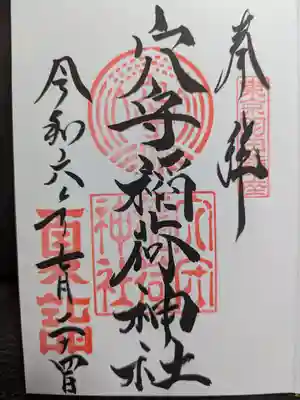 奉拝
東京羽田鎮座
穴守稲荷神社
穴守稲荷神社
令和六年七月二十四日